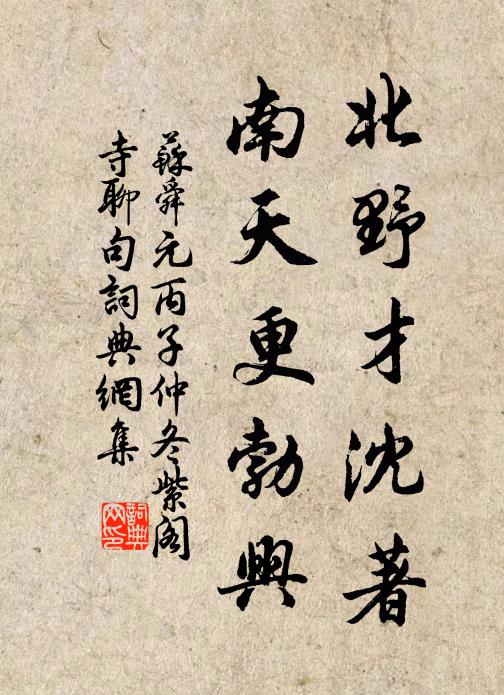 北野才沈著
南天更勃興
蘇舜元丙子仲冬紫閣
寺聊句詞典網集
詞典
网印